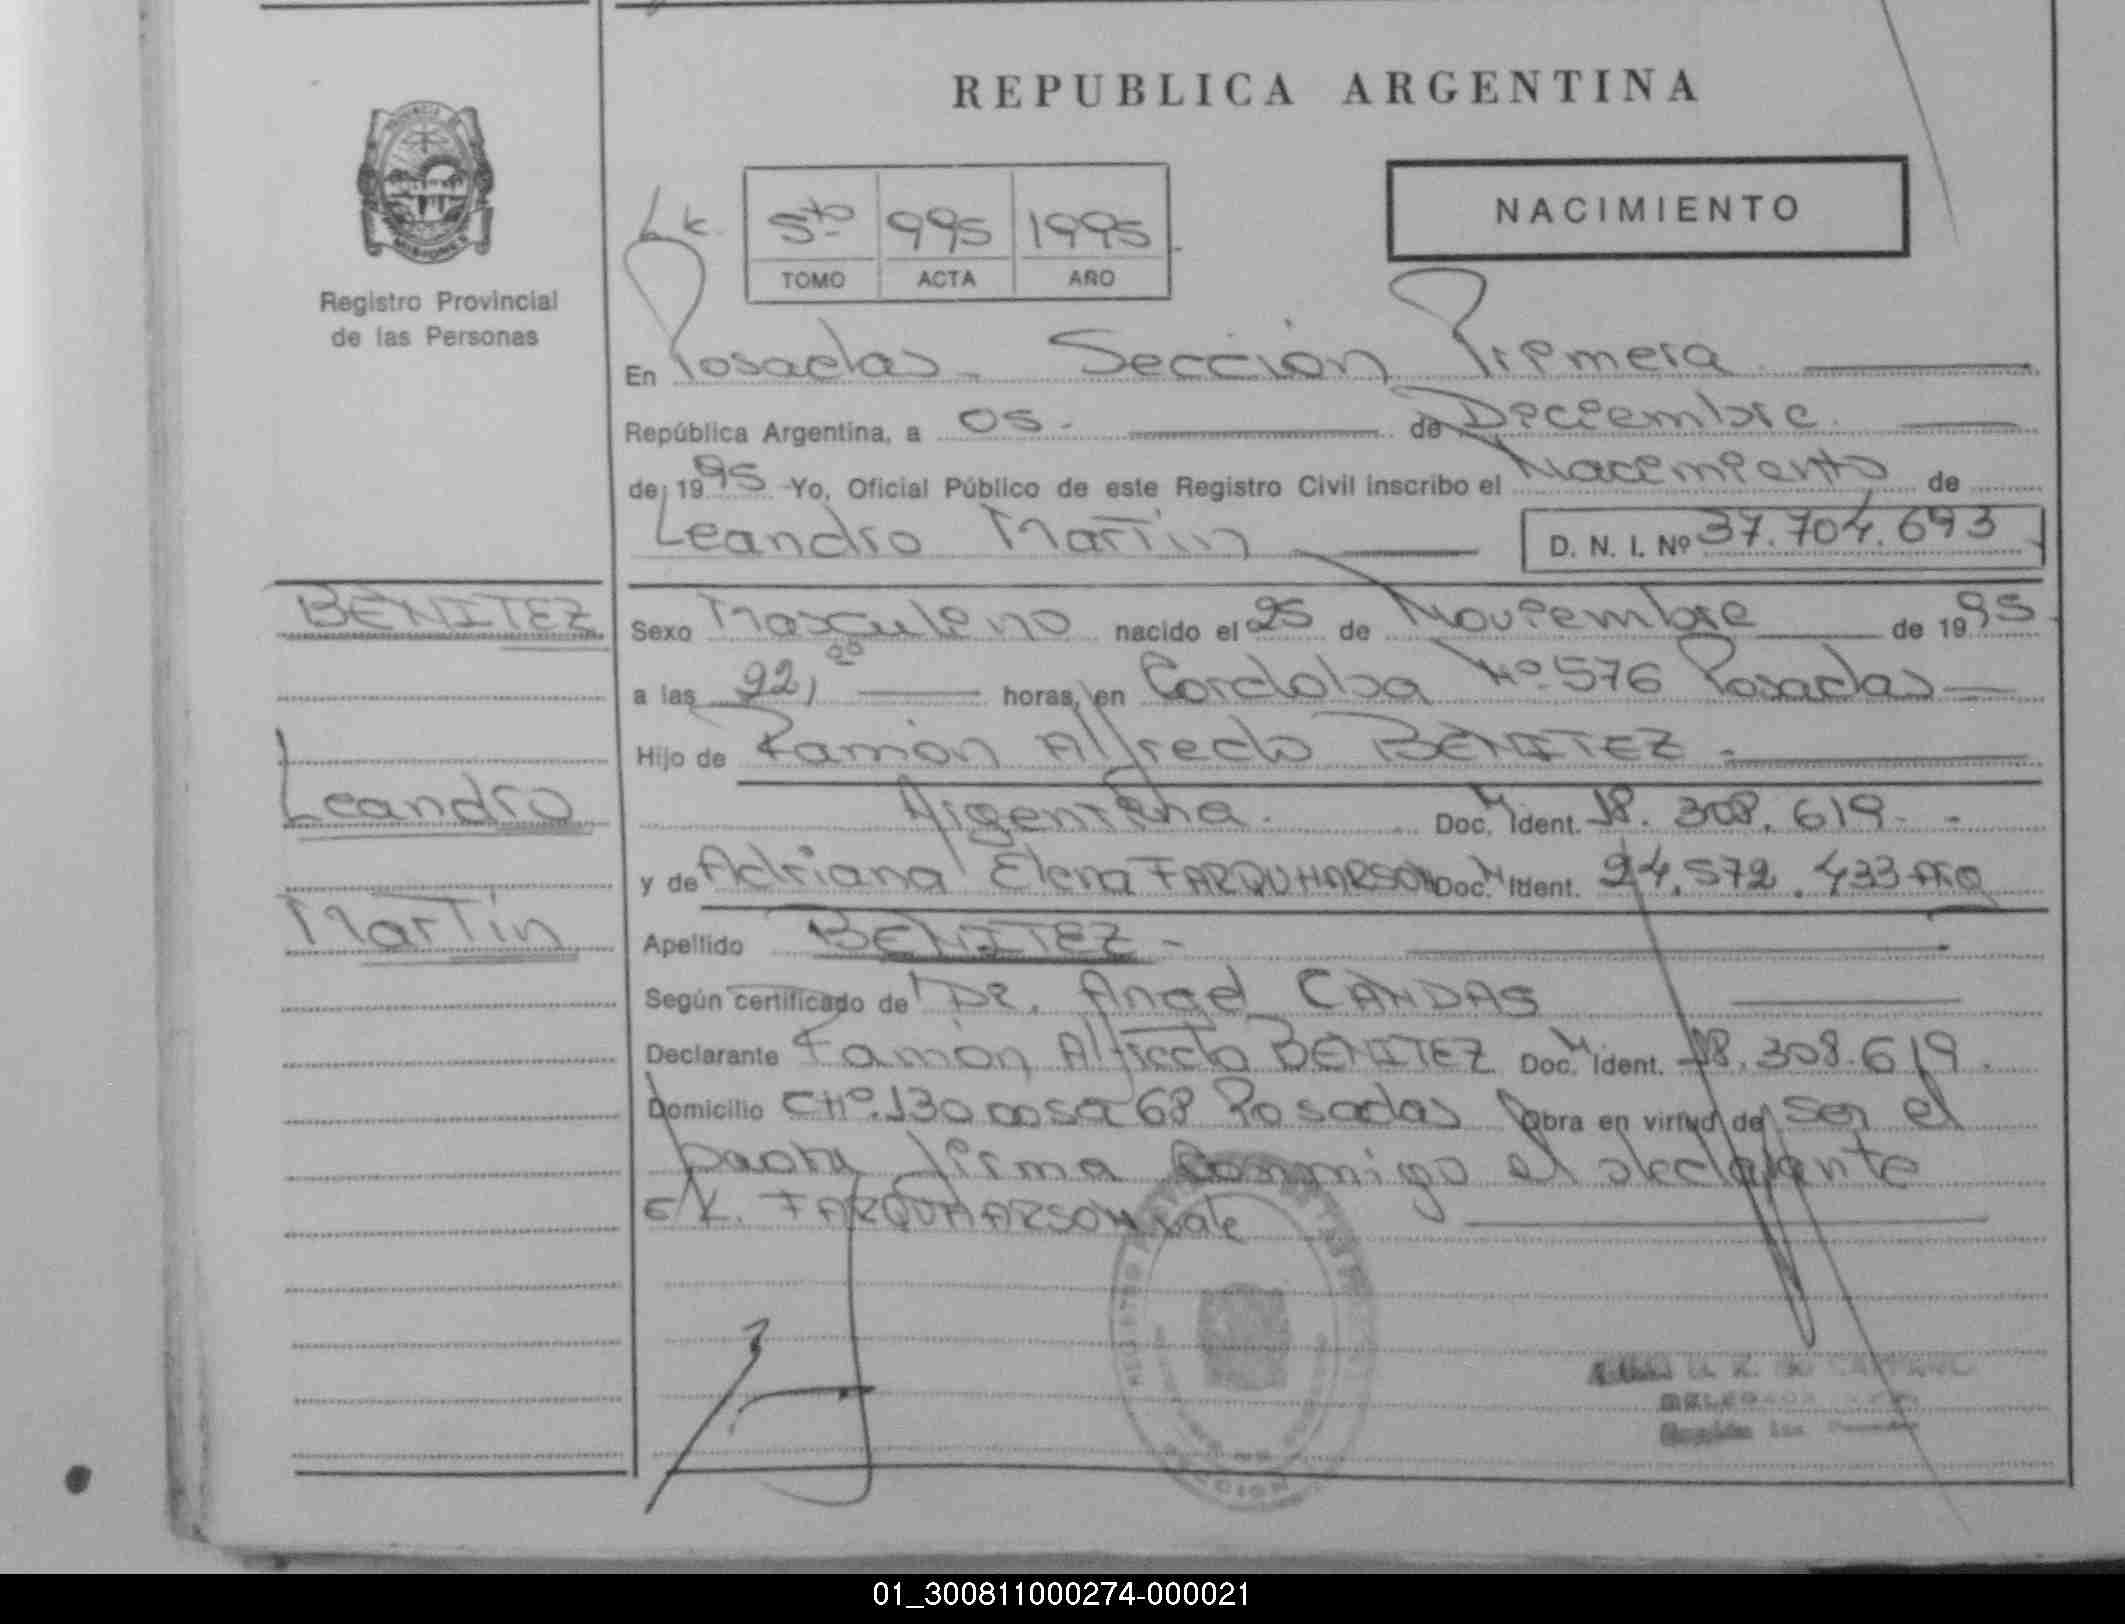 REPUBLICA ARGENTINA
NACIMIENTO
Lk.
5to 995 1995
TOMO ACTA AÑO
Registro Provincial
de las Personas
En Posadas - Sección Primera
República Argentina, a 05. de Diciembre
de 1995 Yo, Oficial Público de este Registro Civil inscribo el Nacimiento de
Leandro Martin D. N. I. Nº 37.704.693
BENITEZ
Leandro
Martin
Sexo Masculino nacido el 25 de Noviembre de 1995
a las 22,00 horas, en Cordoba Nº 576 Posadas
Hijo de Ramón Alfredo BENITEZ -
Argentina. Doc. Ident. 18.308.619 -
y de Adriana Elena FARQUHARSON Doc. Ident. 24.572.433 Arg
Apellido BENITEZ -
Según certificado de Dr. Angel CANDAS
Declarante Ramón Alfredo BENITEZ Doc. Ident. 18.308.619.
Domicilio CHº.130 casa 68 Posadas Obra en virtud de ser el
padre firma conmigo el declarante
E/L. FARQUHARSON vale
01_300811000274-000021